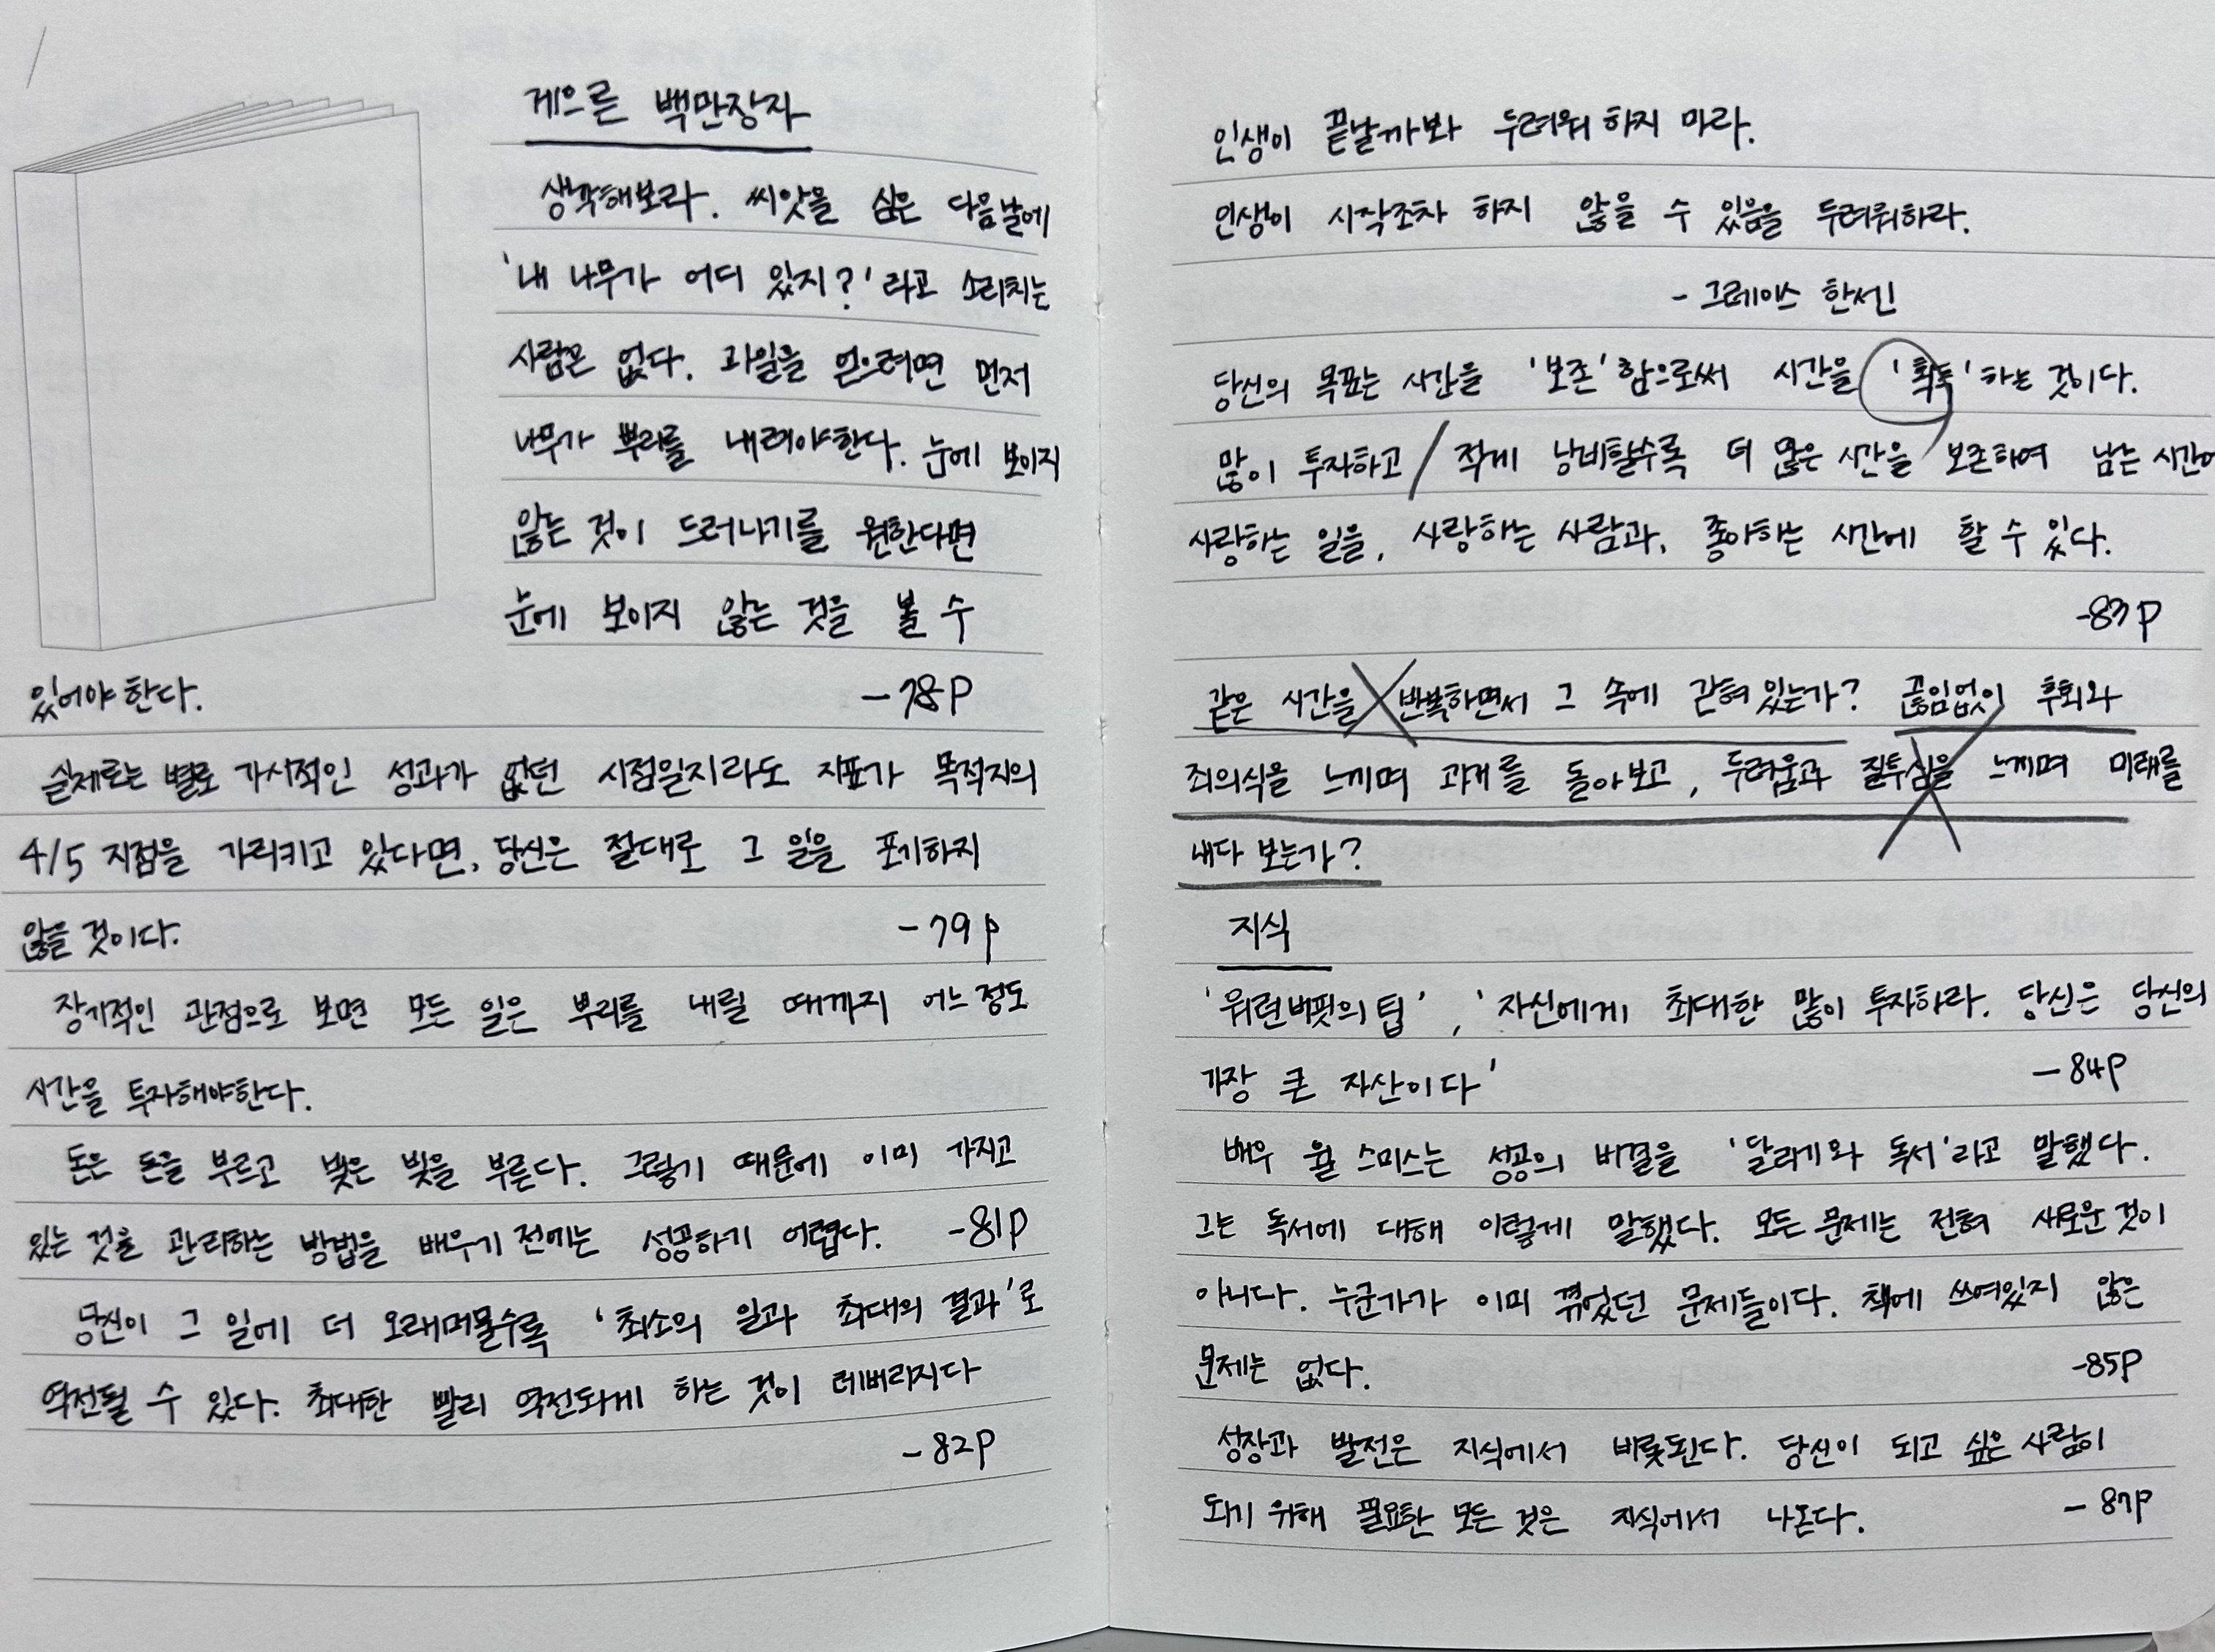 게으른 백만장자
생각해보라. 씨앗을 심은 다음날에
'내 나무가 어디 있지?'라고 소리치는
사람은 없다. 과일을 얻으려면 먼저
나무가 뿌리를 내려야한다. 눈에 보이지
않는 것이 드러나기를 원한다면
눈에 보이지 않는 것을 볼 수
있어야한다. -78p
실제로는 별로 가시적인 성과가 없던 시점일지라도 지표가 목적지의
4/5 지점을 가리키고 있다면, 당신은 절대로 그 일을 포기하지
않을 것이다. -79p
장기적인 관점으로 보면 모든 일은 뿌리를 내릴 때까지 어느정도
시간을 투자해야한다.
돈은 돈을 부르고 빚은 빚을 부른다. 그렇기 때문에 이미 가지고
있는 것을 관리하는 방법을 배우기 전에는 성공하기 어렵다. -81p
당신이 그 일에 더 오래머물수록 '최소의 일과 최대의 결과'로
역전될 수 있다. 최대한 빨리 역전되게 하는 것이 레버리지다
-82p
인생이 끝날까봐 두려워 하지 마라.
인생이 시작조차 하지 않을 수 있음을 두려워하라.
- 그레이스 한센
당신의 목표는 시간을 '보존'함으로써 시간을 '획득'하는 것이다.
많이 투자하고 적게 낭비할수록 더 많은 시간을 보존하여 남는 시간에
사랑하는 일을, 사랑하는 사람과, 좋아하는 시간에 할 수 있다.
-83p
같은 시간을 반복하면서 그 속에 갇혀있는가? 끊임없이 후회와
죄의식을 느끼며 과거를 돌아보고, 두려움과 질투심을 느끼며 미래를
내다 보는가?
지식
'워런버핏의 팁', '자신에게 최대한 많이 투자하라. 당신은 당신의
가장 큰 자산이다' -84p
배우 윌 스미스는 성공의 비결을 '달리기와 독서'라고 말했다.
그는 독서에 대해 이렇게 말했다. 모든 문제는 전혀 새로운 것이
아니다. 누군가가 이미 겪었던 문제들이다. 책에 쓰여있지 않은
문제는 없다. -85p
성장과 발전은 지식에서 비롯된다. 당신이 되고 싶은 사람이
되기 위해 필요한 모든 것은 지식에서 나온다. -87p